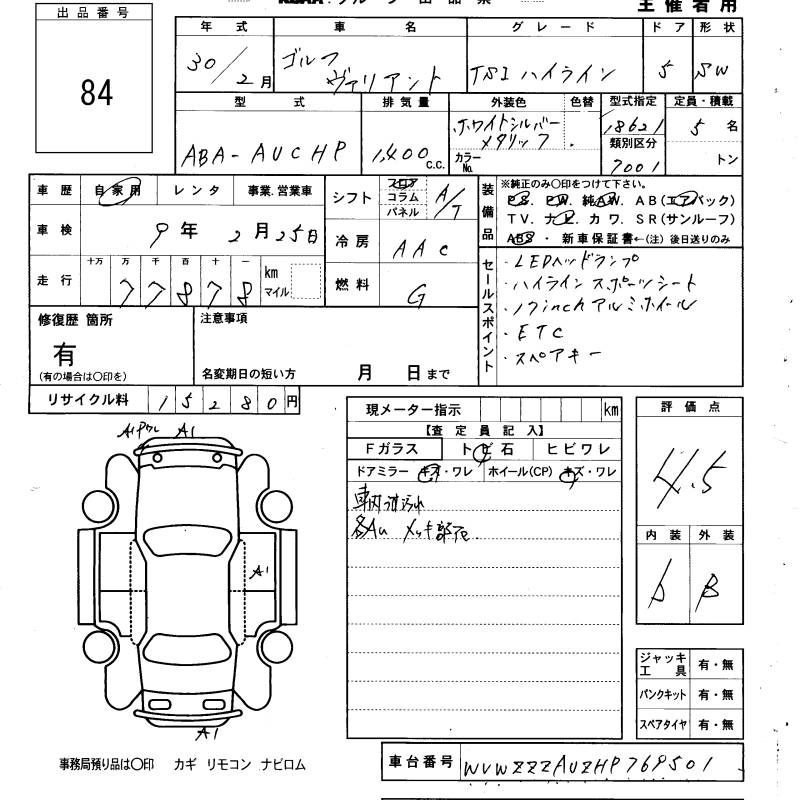 出品番号
84
主催者用
年式 車名 グレード ドア 形状
30/2月 ゴルフ ヴァリアント TSI ハイライン 5 SW
型式 排気量 外装色 色替 型式指定 定員・積載
ABA-AUCHP 1,400 c.c. ホワイトシルバー メタリック 18621 5 名
カラーNo. 類別区分 7001 トン
車歴 自家用 レンタ 事業.営業車
車検 9年 2月25日
走行 十万 万 千 百 十 一 km マイル
77878
シフト フロア コラム パネル A/T
冷房 AAC
燃料 G
装備品 ※純正のみ〇印をつけて下さい。
PS. PW. 純AW. AB(エアバック)
TV. ナビ. カワ. SR(サンルーフ)
ABS ・ 新車保証書←(注) 後日送りのみ
セールスポイント
・LEDヘッドランプ
・ハイライン スポーツシート
・17inchアルミホイール
・ETC
・スペアキー
修復歴 箇所
有
(有の場合は〇印を)
注意事項
名変期日の短い方 月 日まで
リサイクル料 15280円
現メーター指示 km
【査定員記入】
Fガラス トビ石 ヒビワレ
ドアミラー キズ・ワレ ホイール(CP) キズ・ワレ
評価点
4.5
内装 外装
b B
A1 A1
A1
A1
ジャッキ工具 有・無
パンクキット 有・無
スペアタイヤ 有・無
事務局預り品は〇印 カギ リモコン ナビロム
車台番号 WVWZZZAUZHP769501